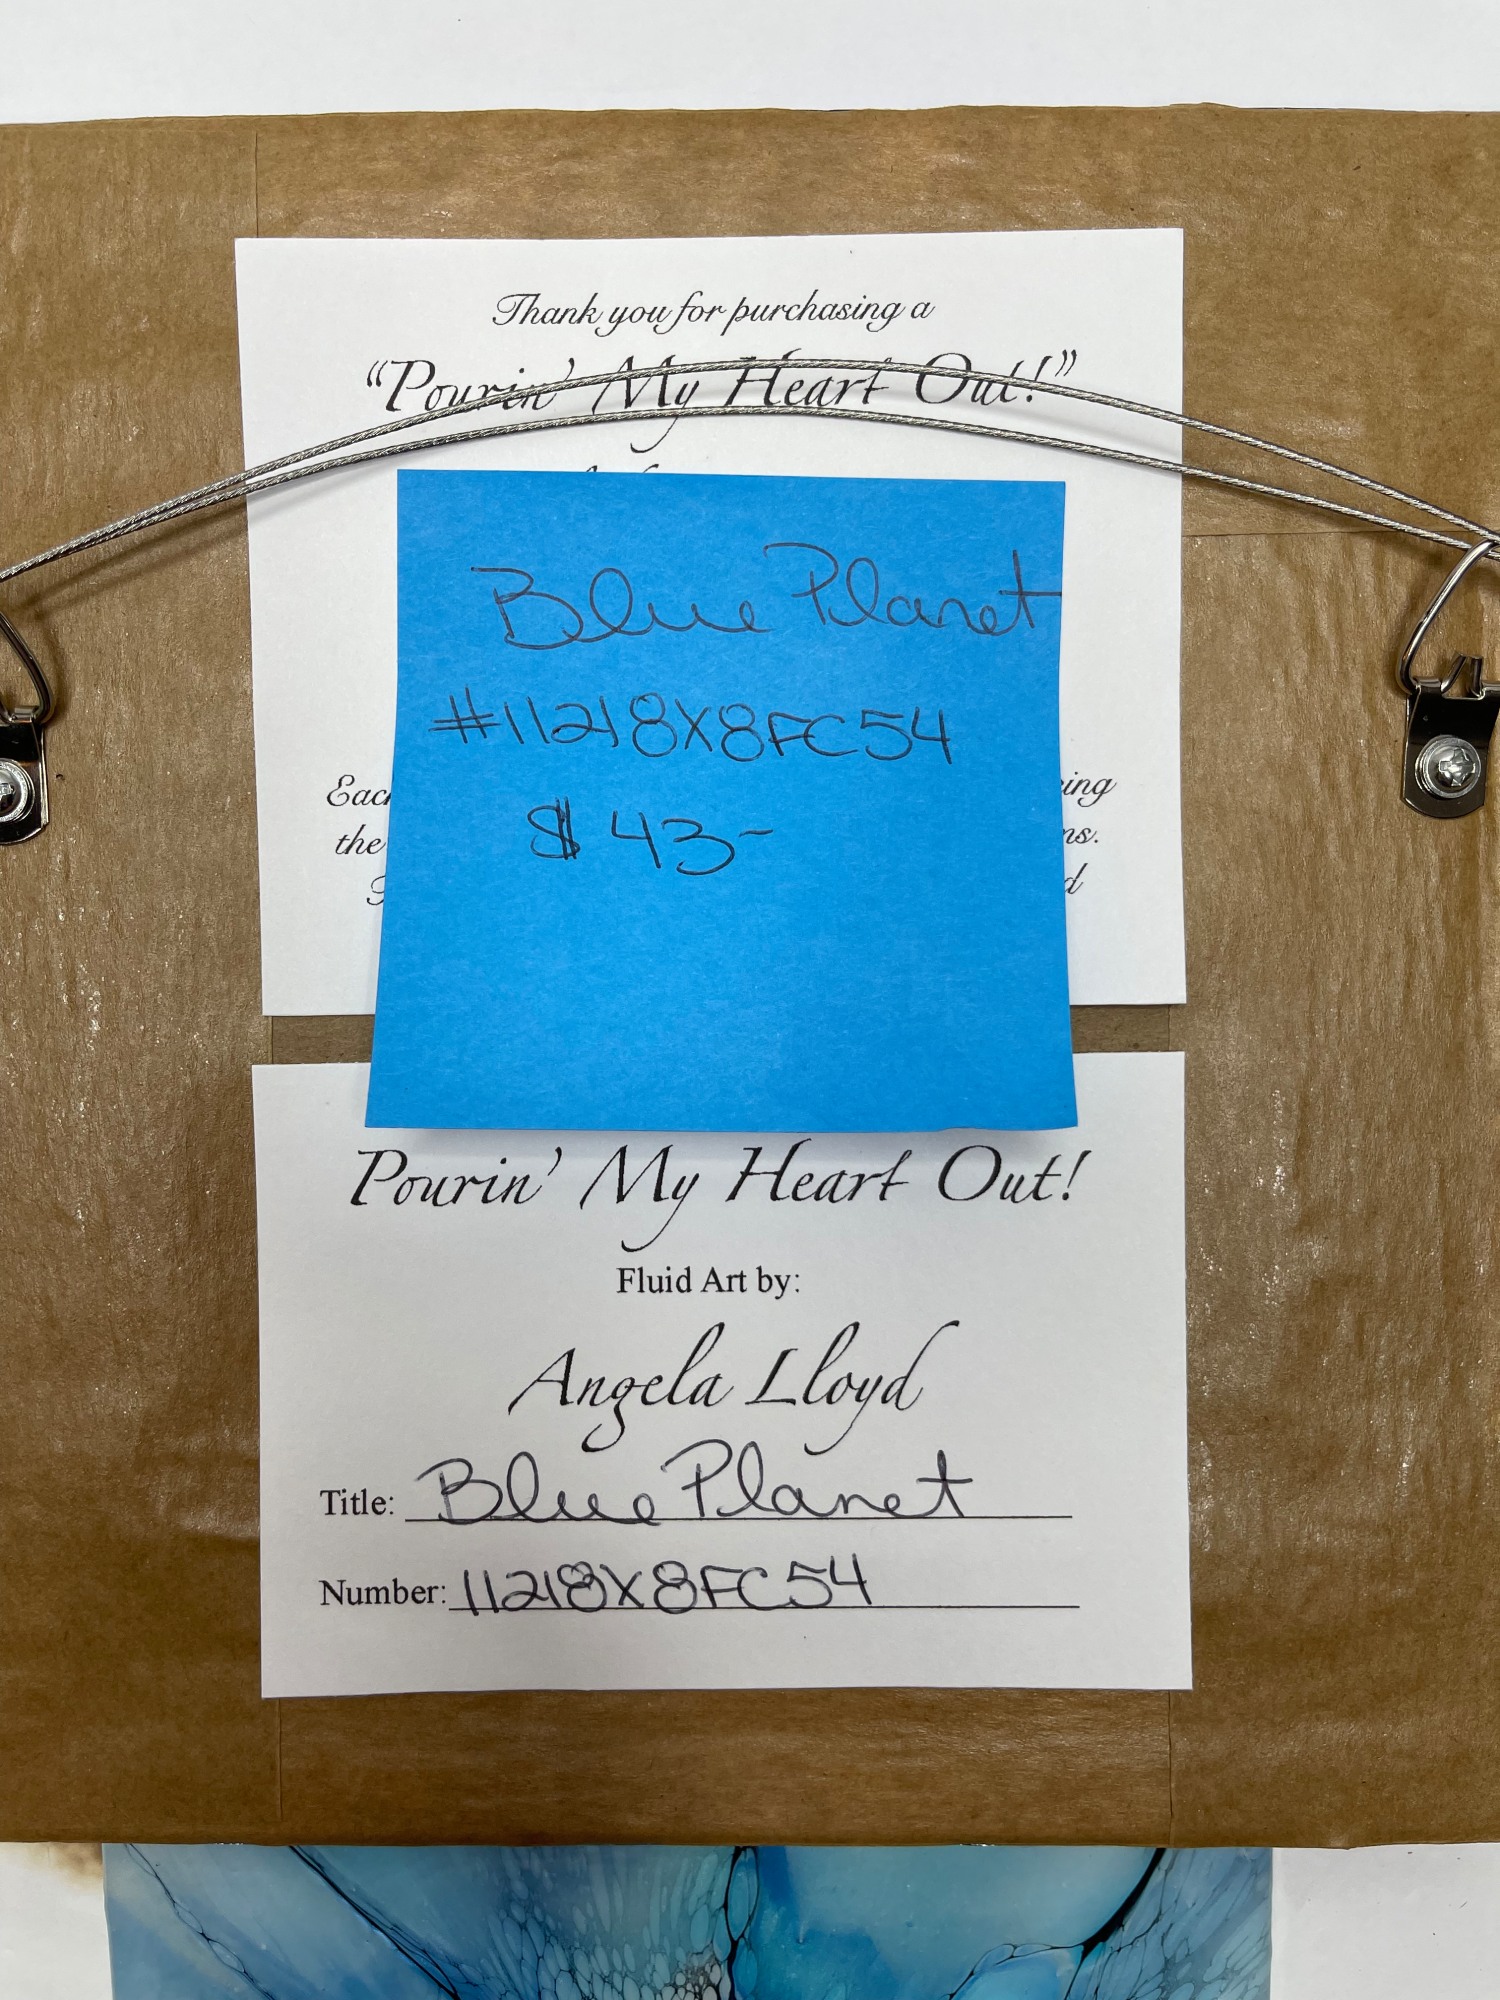 Thank you for purchasing a
“Pourin’ My Heart Out!”
Blue Planet
#11218X8FC54
$ 43-
the
Pourin’ My Heart Out!
Fluid Art by:
Angela Lloyd
Title: Blue Planet
Number: 11218X8FC54